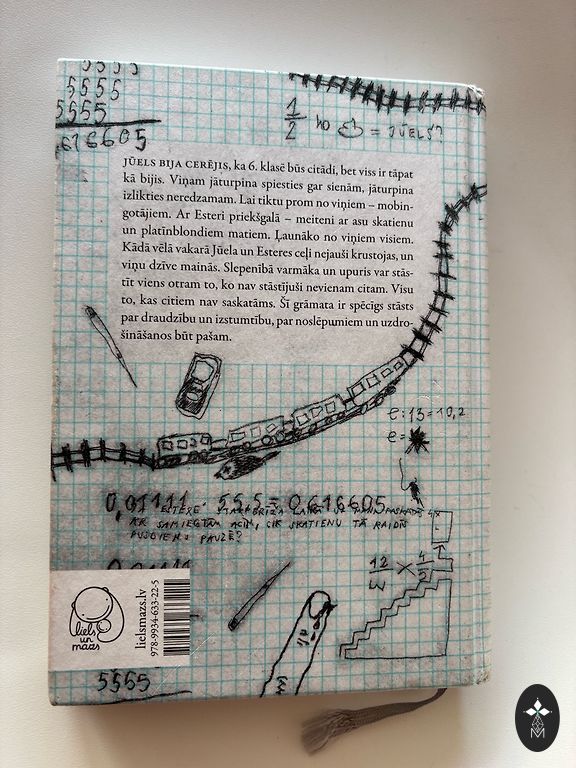 5555
5555
5555
616605
1/2 no = JŪELS?
JŪELS BIJA CERĒJIS, ka 6. klasē būs citādi, bet viss ir tāpat
kā bijis. Viņam jāturpina spiesties gar sienām, jāturpina
izlikties neredzamam. Lai tiktu prom no viņiem – mobin-
gotājiem. Ar Esteri priekšgalā – meiteni ar asu skatienu
un platīnblondiem matiem. Ļaunāko no viņiem visiem.
Kādā vēlā vakarā Jūela un Esteres ceļi nejauši krustojas, un
viņu dzīve mainās. Slepenībā varmāka un upuris var stās-
tīt viens otram to, ko nav stāstījuši nevienam citam. Visu
to, kas citiem nav saskatāms. Šī grāmata ir spēcīgs stāsts
par draudzību un izstumtību, par noslēpumiem un uzdro-
šināšanos būt pašam.
e:13=10,2
e=
0,01111 · 55,5 = 0,616605
AR SAMIEGTĀM ACĪM, CIK SKATIENU TĀ RAIDĪS
PUSDIENU PAUZĒ?
12/W × 4/5
liels
un
mazs
lielsmazs.lv
978-9934-633-22-5
5555
M